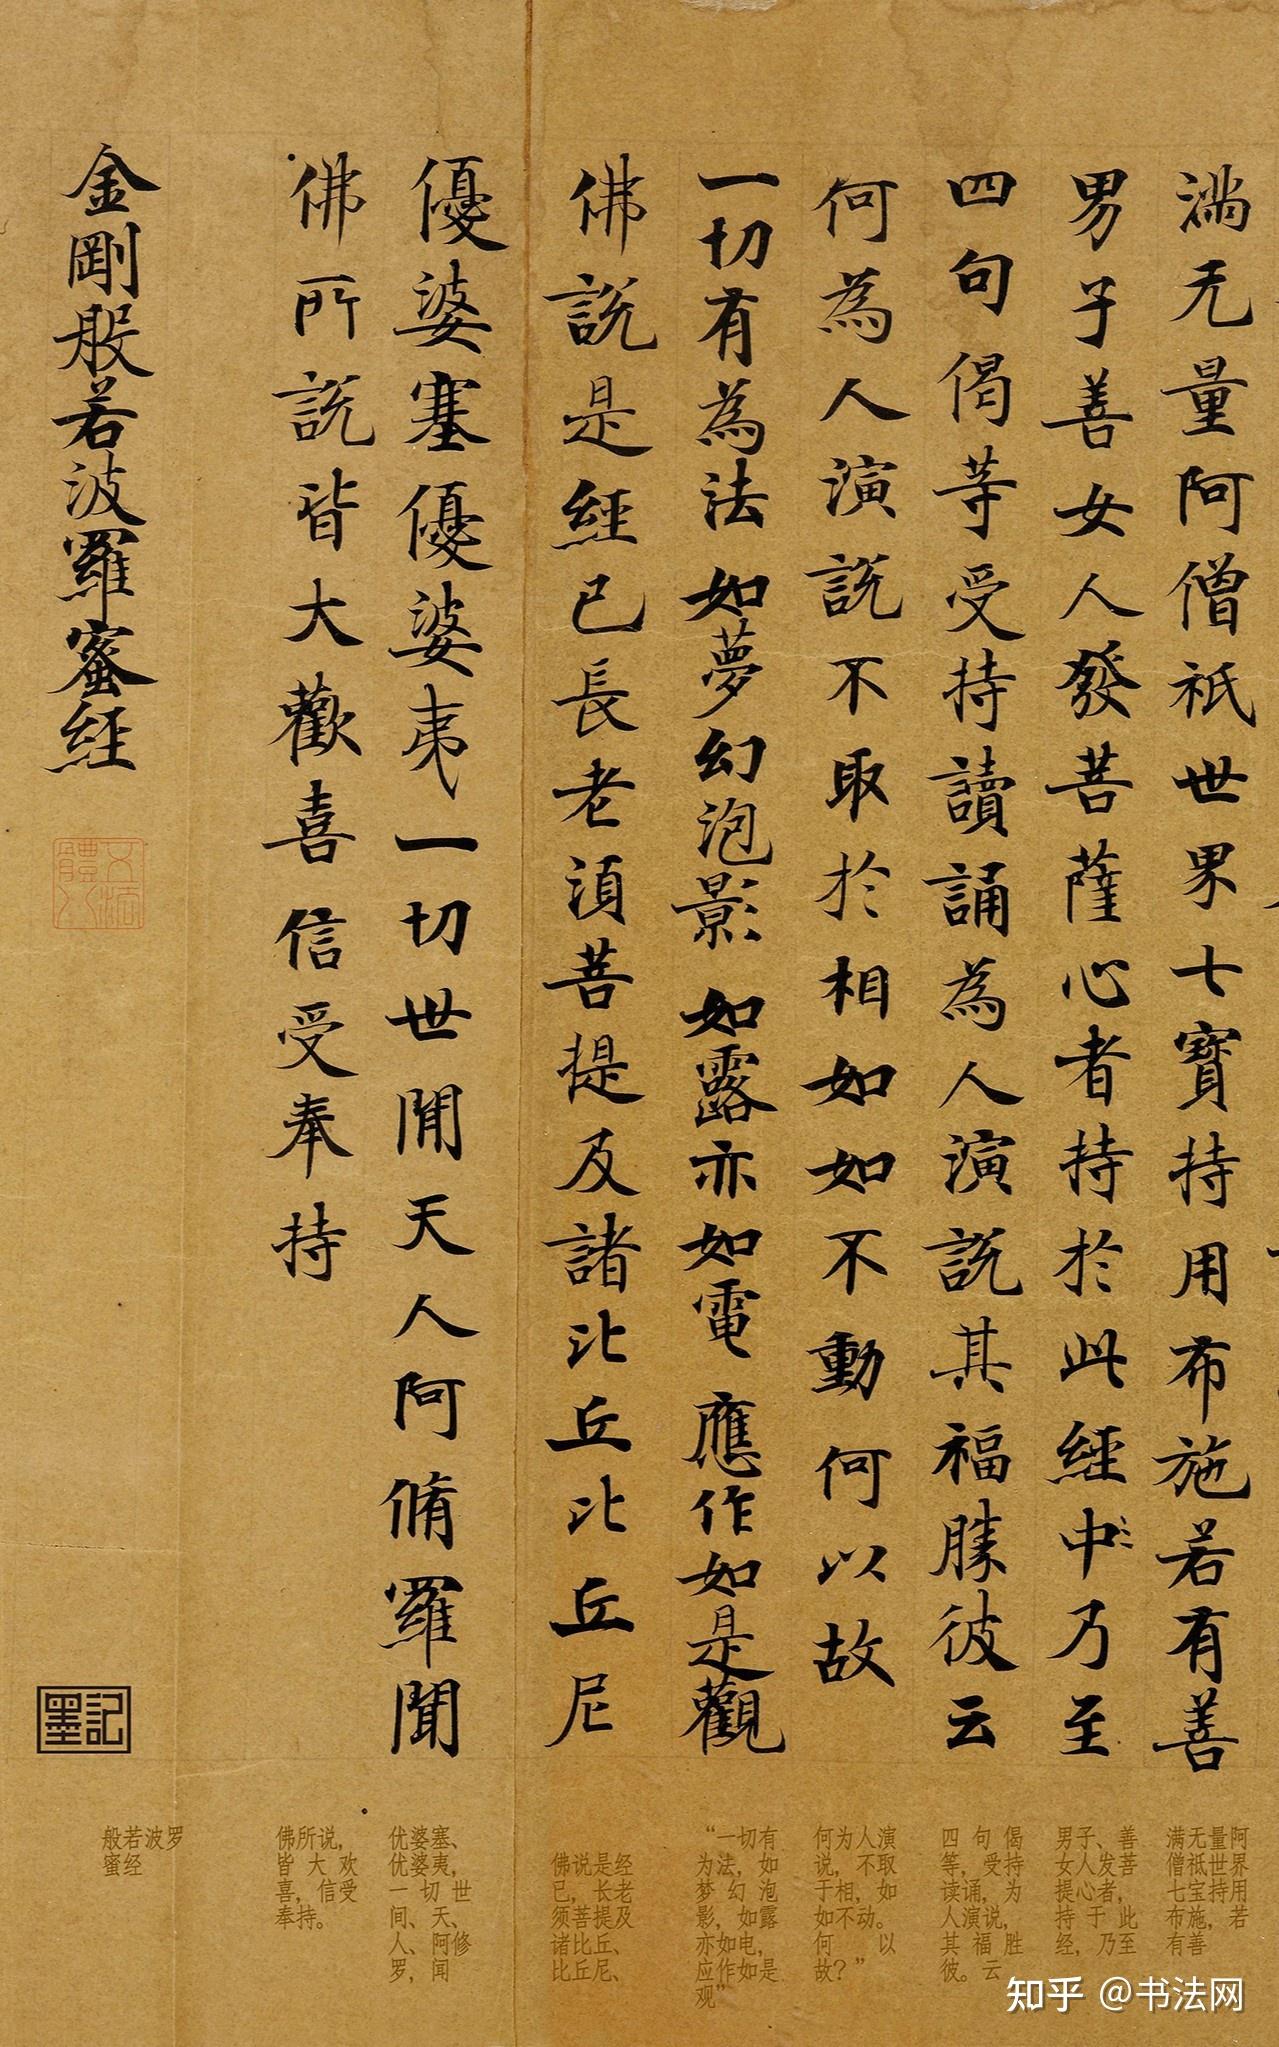 滿无量阿僧祇世界七寶持用布施若有善
男子善女人發菩薩心者持於此經中乃至
四句偈等受持讀誦為人演說其福勝彼云
何為人演說不取於相如如不動何以故
一切有為法 如夢幻泡影 如露亦如電 應作如是觀
佛說是經已長老須菩提及諸比丘比丘尼
優婆塞優婆夷一切世間天人阿脩羅聞
佛所說皆大歡喜信受奉持
金剛般若波羅蜜經
墨記
满无量阿
僧祇世界
七宝持用
布施，若
有善
男子、善
女人发菩
提心者，
持于此
经，乃至
四句偈
等，受持
读诵，为
人演说，
其福胜
彼。云
何为人演
说，不取
于相，如
如不动。
何以
故？”
“一切有
为法，如
梦幻泡
影，如露
亦如电，
应作如是
观”
佛说是经
已，长老
须菩提及
诸比丘、
比丘尼、
优婆塞、
优婆夷，
一切世
间、天、
人、阿修
罗，闻
佛所说，
皆大欢
喜，信受
奉持。
般若波罗
蜜经
知乎 @书法网